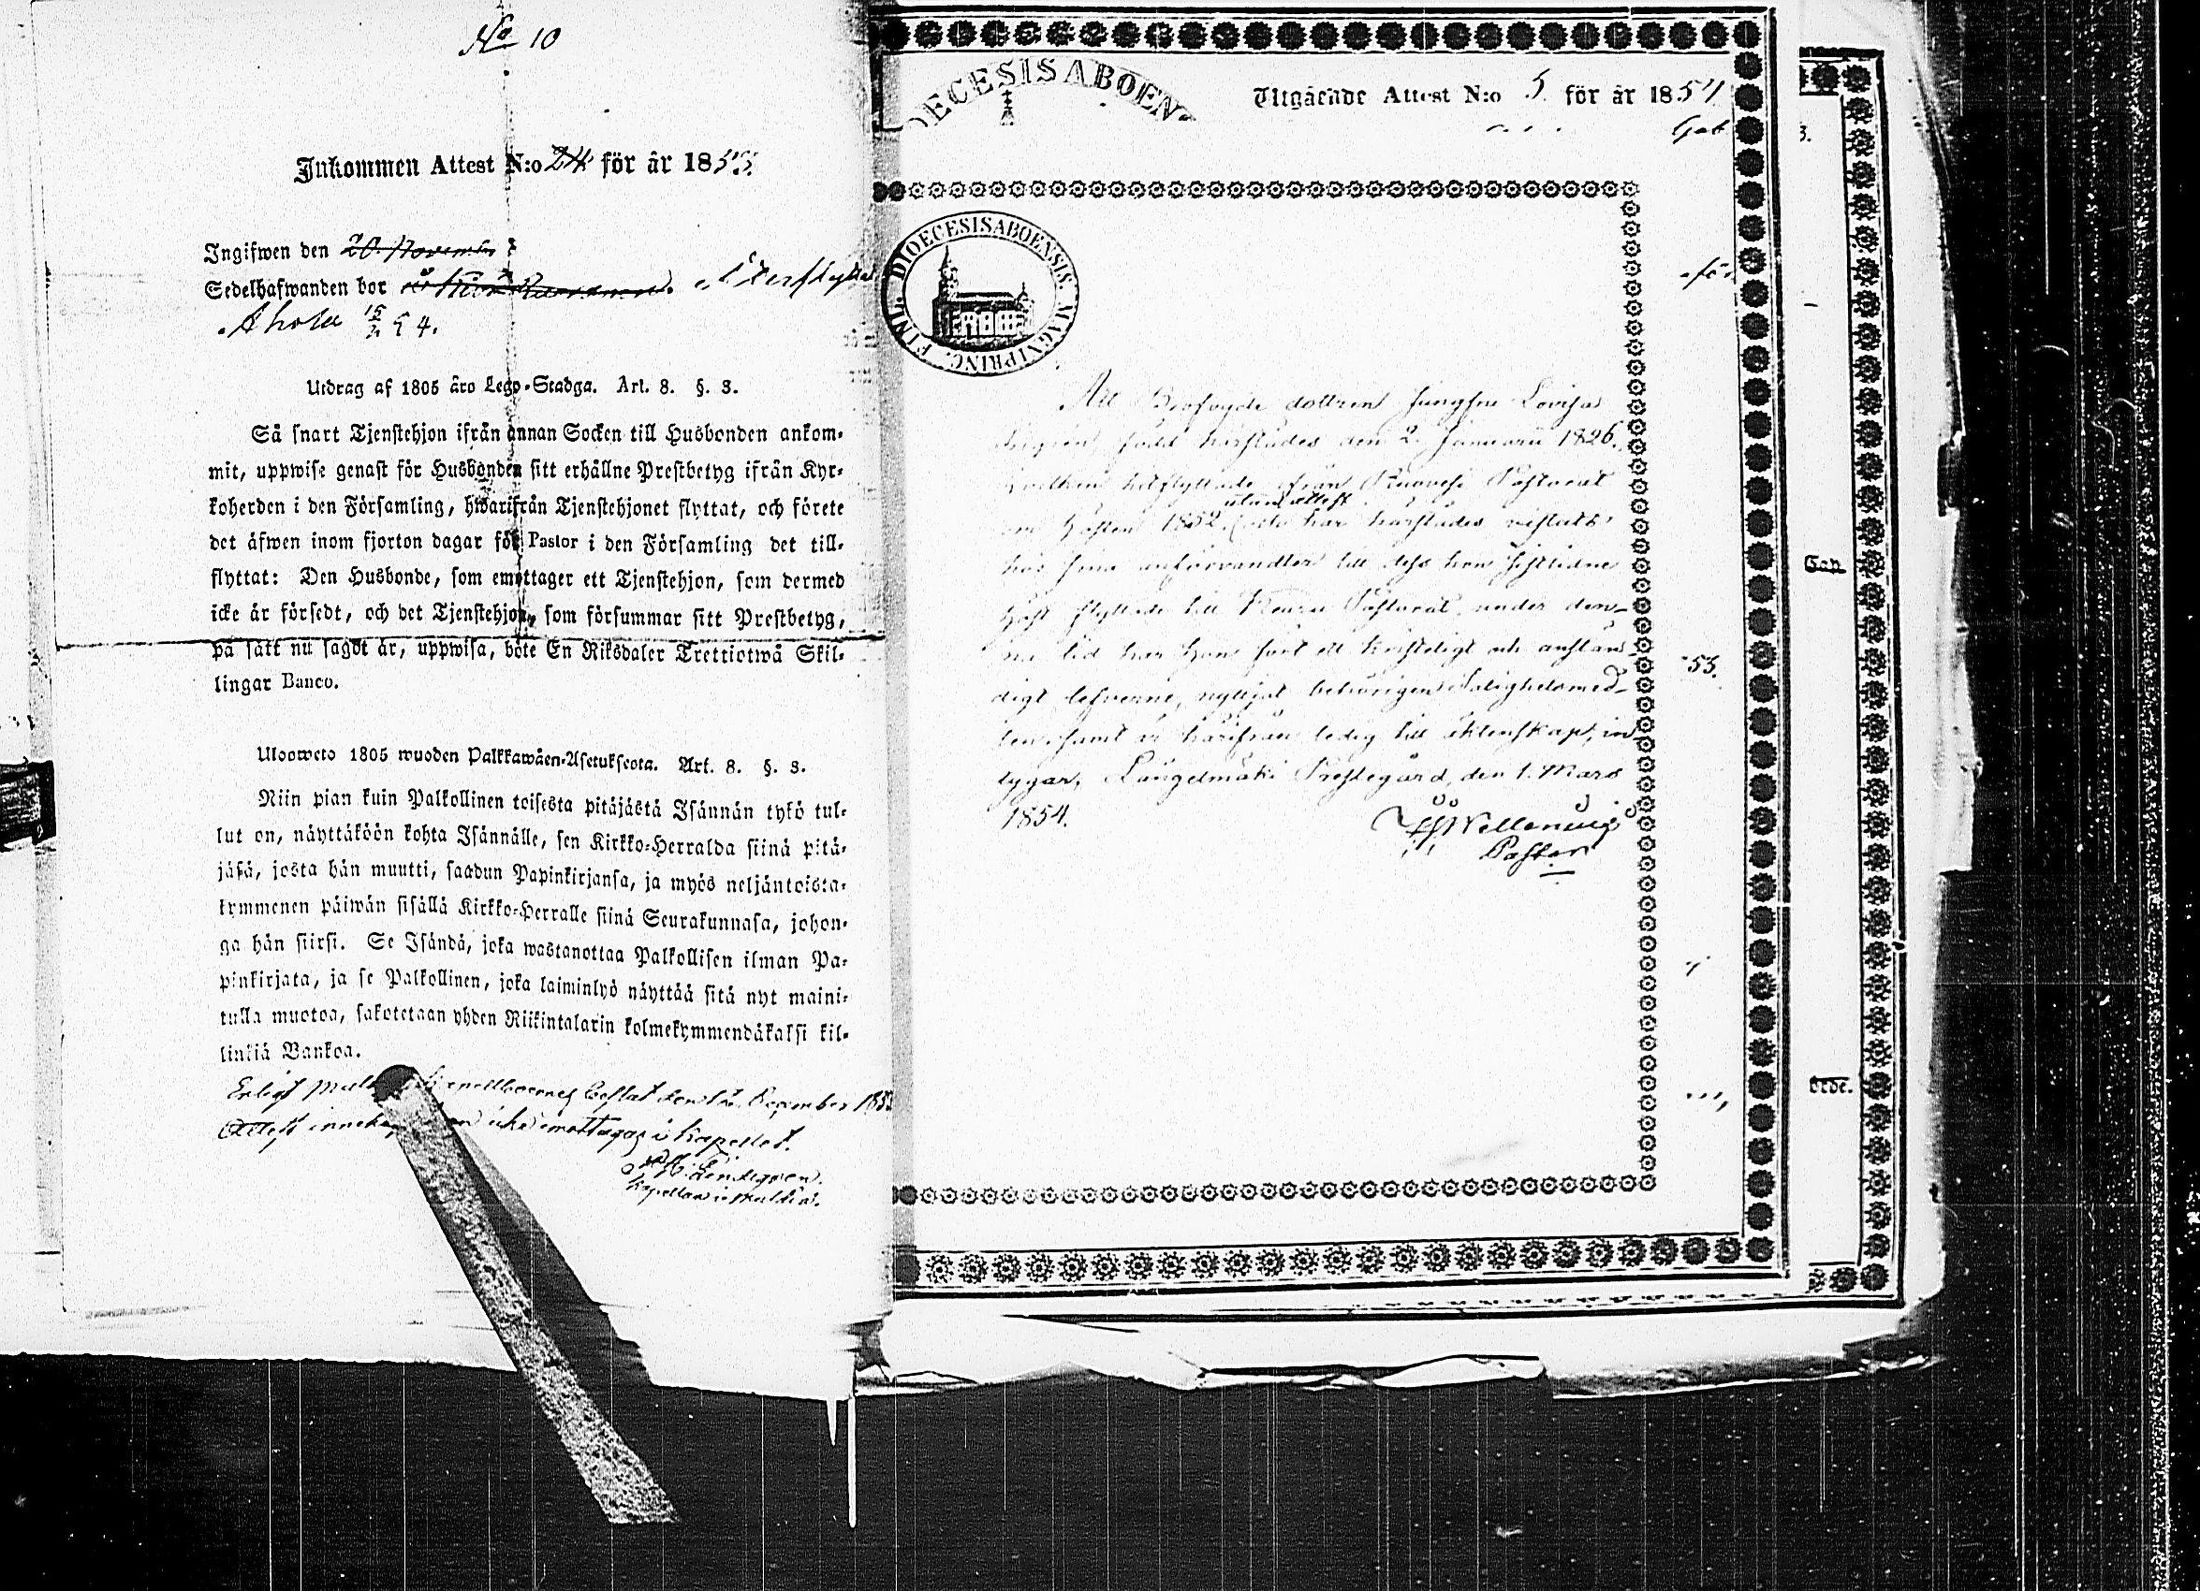 No 10
Inkommen Attest N:o 24 för år 1853.
Ingifwen den 20. November
Sedelhafwanden bor
Ahola 15/2 54.
Utdrag af 1805 åro Lego-Stadga. Art. 8. §. 3.
Så snart Tjenstehjon ifrån annan Socken till Husbonden ankom-
mit, uppwise genast för Husbonden sitt erhållne Prestbetyg ifrån Kyr-
koherden i den Församling, hwarifrån Tjenstehjonet flyttat, och förete
det äfwen inom fjorton dagar för Pastor i den Församling det till-
flyttat: Den Husbonde, som emottager ett Tjenstehjon, som dermed
icke är försedt, och det Tjenstehjon, som försummar sitt Prestbetyg,
på sätt nu sagdt är, uppwisa, böte En Riksdaler Trettiotwå Skil-
lingar Banco.
Uloosweto 1805 wuoden Palkkawäen-Asetuksesta. Art. 8. §. 3.
Niin pian kuin Palkollinen toisesta pitäjästä Isännän tykö tul-
lut on, näyttäköön kohta Isännälle, sen Kirkko-Herralda siinä pitä-
jäsä, josta hän muutti, saadun Papinkirjansa, ja myös neljäntoista-
kymmenen päiwän sisällä Kirkko-Herralle siinä Seurakunnasa, johon-
ga hän siirsi. Se Isändä, joka wastanottaa Palkollisen ilman Pa-
pinkirjata, ja se Palkollinen, joka laiminlyö näyttää sitä nyt maini-
tulla muotoa, sakotetaan yhden Riikintalarin kolmekymmendäkaksi kil-
linkiä Bankoa.
Enligt December 1853
Attest icke emottagas i Kapellet.
Lindegren.
Kapellan i Multia.
DIOECESIS ABOENS
Utgående Attest N:o 5 för år 1854
DIOECESIS ABOENSIS. MAGNI PRINC. FINL.
Att dottren Jungfru Lovisa
född härstädes den 2. Januarii 1826.
hitflyttade ifrån Ruovesi Pastorat
utan attest
om hösten 1852, och har härstädes vistats
hos sina anförvandter till dess hon sistlidne
höst flyttade till Keuru Pastorat, under den-
na tid har hon fört ett christeligt och anstän-
digt lefverne, nyttjat behörigen Salighetsmed-
len, samt är härifrån ledig till äktenskap, in-
tygar, Längelmäki Prestegård, den 1. Mars
1854.
Pastor
53.